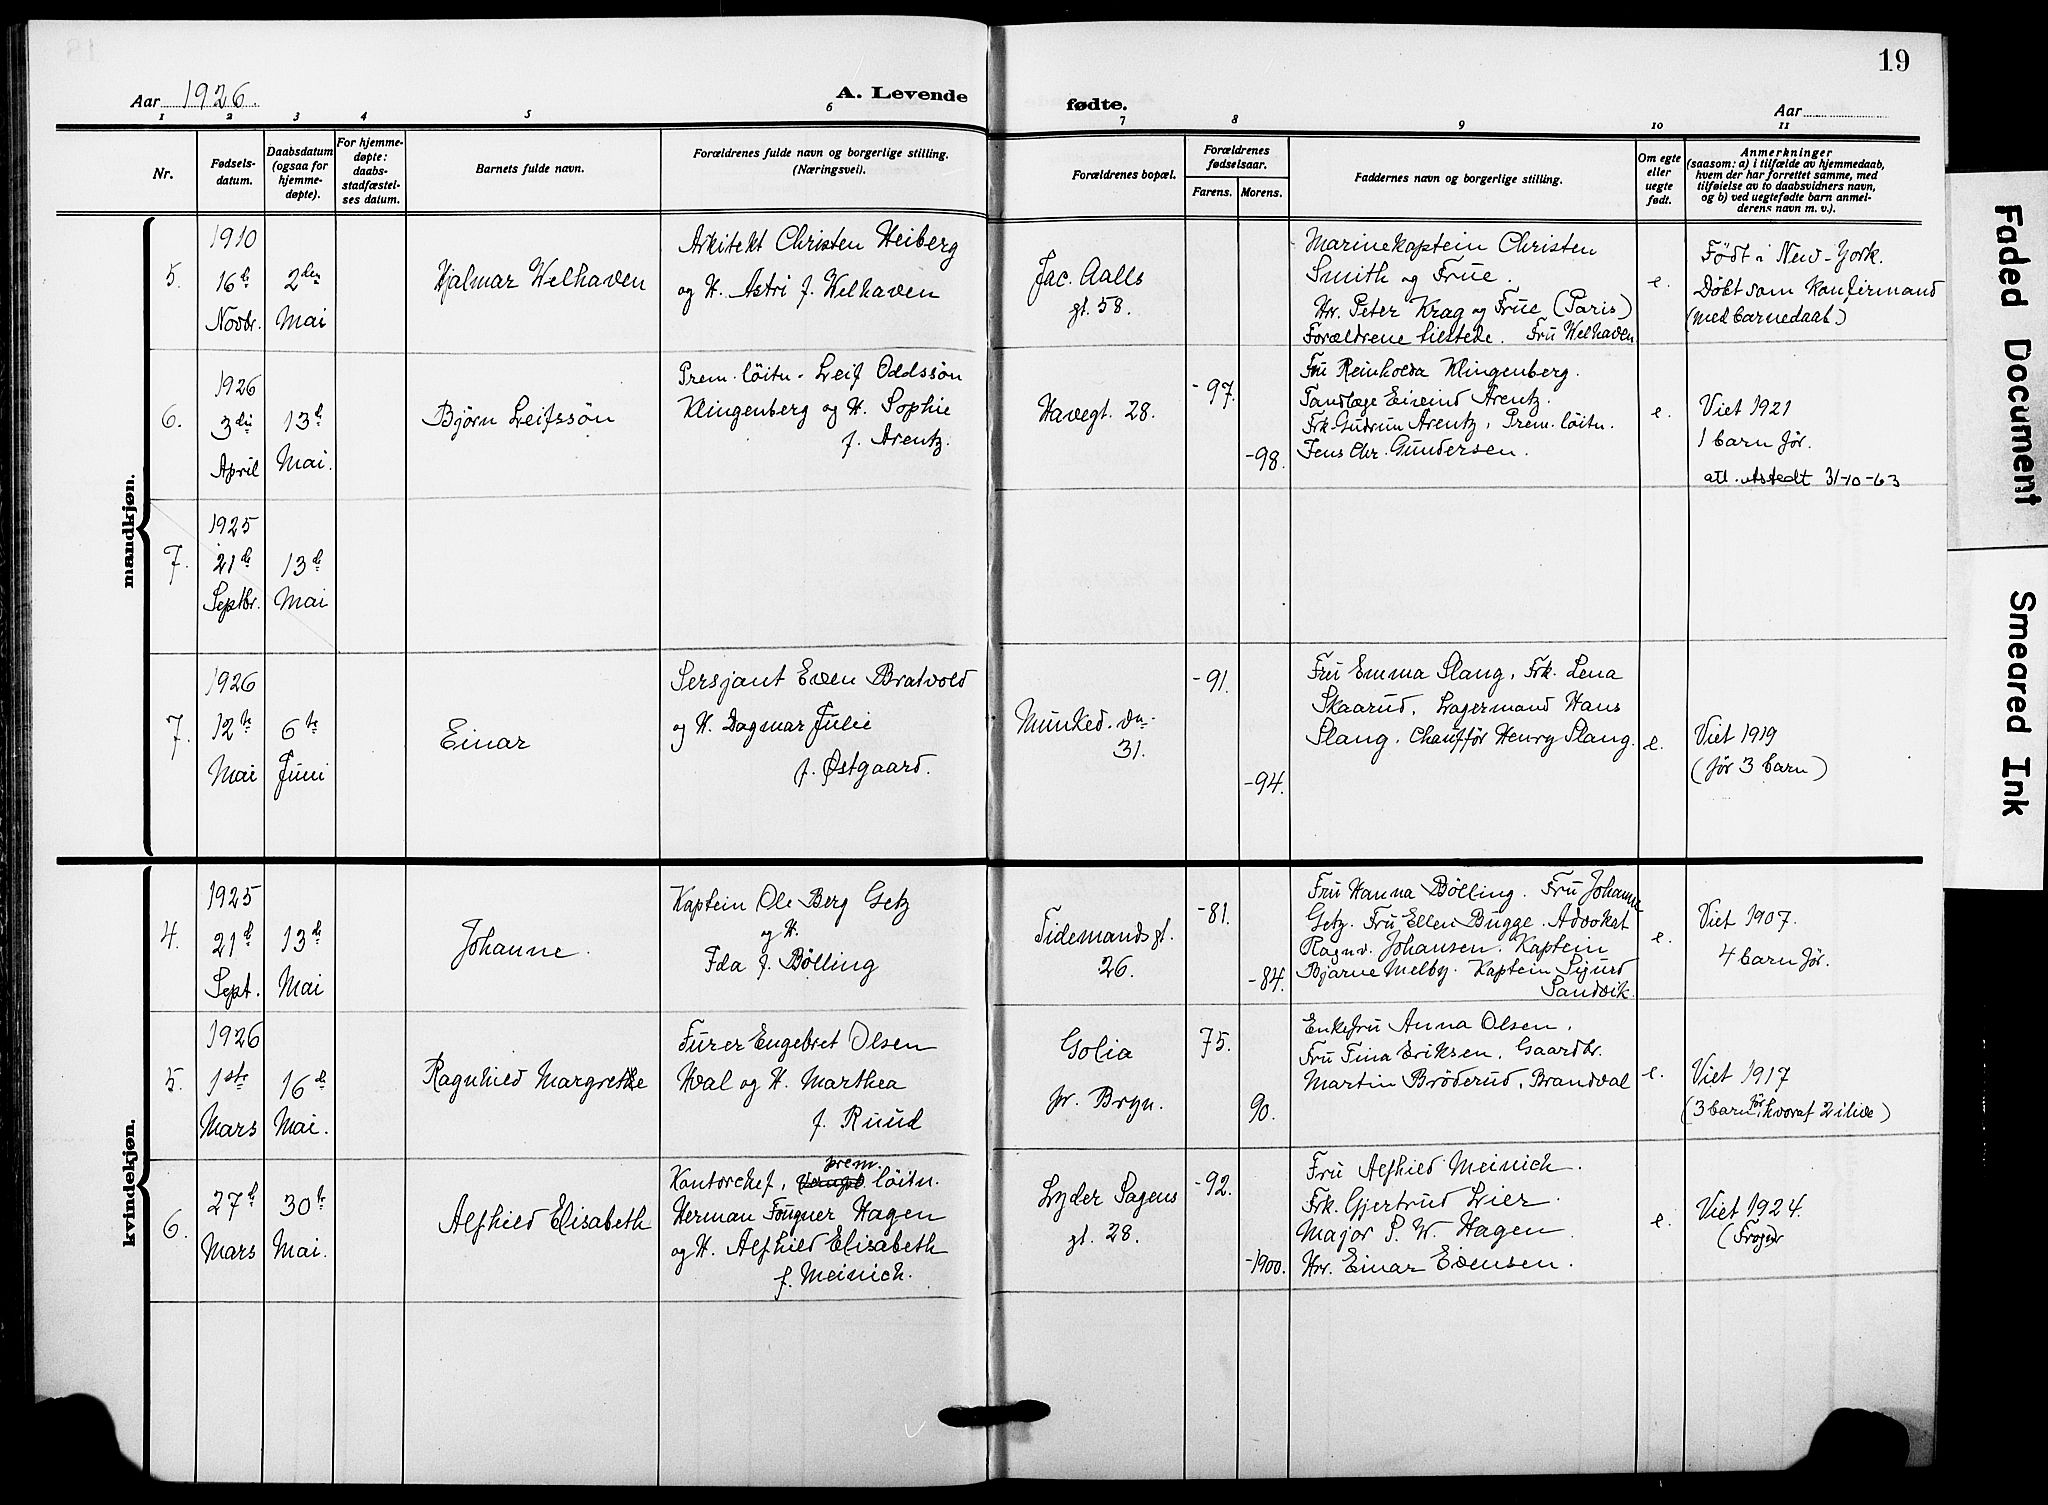 19
Aar 1926.
A. Levende fødte.
Aar
1 2 3 4 5 6 7 8 9 10 11
Nr.
Fødsels-
datum.
Daabsdatum
(ogsaa for
hjemme-
døpte).
For hjemme-
døpte:
daabs-
stadfæstel-
ses datum.
Barnets fulde navn.
Forældrenes fulde navn og borgerlige stilling.
(Næringsvei).
Forældrenes bopæl.
Forældrenes
fødselsaar.
Farens. Morens.
Faddernes navn og borgerlige stilling.
Om egte
eller
uegte
født.
Anmerkninger
(saasom: a) i tilfælde av hjemmedaab,
hvem der har forrettet samme, med
tilføielse av to daabsvidners navn,
og b) ved uegtefødte barn anmel-
derens navn m. v.).
mandkjøn.
5.
1910
16de
Novbr.
2den
Mai
Hjalmar Welhaven
Arkitekt Christen Heiberg
og H. Astri f. Welhaven
Jac. Aalls
gt. 58.
Marinekaptein Christen
Smith og Frue.
Hr. Peter Krag og Frue (Paris)
Forældrene tilstede. Fru Welhaven
e.
Født i New-York.
Døbt som Konfirmand
(med barnedaab)
6.
1926
3die
April
13de
Mai.
Bjørn Leifssön
Prem. löitn. Leif Oddssön
Klingenberg og H. Sophie
f. Arentz.
Havegt. 28.
-97.
-98.
Fru Reinholda Klingenberg.
Tandlæge Eivind Arentz.
Frk. Gudrun Arentz, Prem. löitn.
Jens Chr. Gundersen.
e.
Viet 1921
1 barn før.
att. utstedt 31-10-63
7.
1925
21de
Septbr.
13de
Mai
7.
1926
12te
Mai
6te
Juni
Einar
Sersjant Even Bratvold
og H. Dagmar Julie
f. Østgaard.
Munked.vn.
31.
-91.
-94.
Fru Emma Slang, Frk. Lena
Skaarud, Lagermand Hans
Slang, Chauffør Henry Slang.
e.
Viet 1919
(før 3 barn)
kvindekjøn.
4.
1925
21de
Sept.
13de
Mai
Johanne.
Kaptein Ole Berg Getz
og H.
Ida f. Bølling
Tidemands gt.
26.
-81.
-84.
Fru Hanna Bølling. Fru Johanne
Getz. Fru Ellen Bugge. Advokat
Ragnv. Johansen. Kaptein
Bjarne Melby. Kaptein Sigurd
Sandvik.
e.
Viet 1907.
4 barn før.
5.
1926
1ste
Mars
16de
Mai.
Ragnhild Margrethe
Furer Engebret Olsen
Hval og H. Marthea
f. Ruud
Golia
pr. Bryn.
75.
90.
Enkefru Anna Olsen,
Fru Tina Eriksen, Gaardbr.
Martin Bröderud, Brandval
e.
Viet 1917
(3 barn før, hvoraf 2 ilive)
6.
27de
Mars
30te
Mai.
Alfhild Elisabeth
Kontorchef, prem. löitn.
Herman Fougner Hagen
og H. Alfhild Elisabeth
f. Meinich.
Lyder Sagens
gt. 28.
-92.
-1900.
Fru Alfhild Meinich.
Frk. Gjertrud Lier.
Major S. W. Hagen.
Hr. Einar Evensen.
e.
Viet 1924.
Faded Document
Smeared Ink